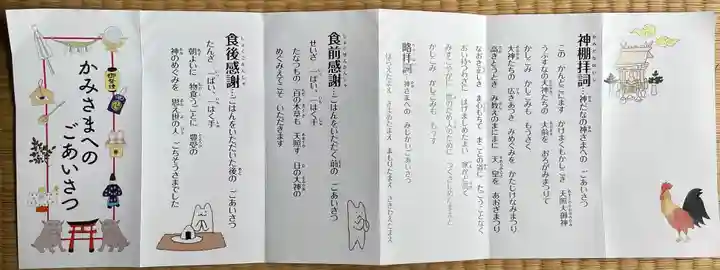 神棚拝詞…神だなの神さまへの ごあいさつ
この かんどこにます かけまくもかしこき 天照大御神
うぶすなの大神たちの 大前を おろがみまつりて
かしこみ かしこみも もうさく
大神たちの 広きあつき みめぐみを かたじけなみまつり
高きとうとき み教えのまにまに 天皇を あおぎまつり
なおき まごころ もちて まことの道に たごうことなく
かしこみ かしこみも もうす
略拝詞…神さまへの みじかいごあいさつ
はらえたまえ きよめたまえ まもりたまえ さきわえたまえ
食前感謝…ごはんをいただく前の ごあいさつ
せいざ 一ぱい、一はく手
たなつもの 百の木草も 天照す 日の大神の
めぐみえてこそ いただきます
食後感謝…ごはんをいただいた後の ごあいさつ
たんざ 一ぱい、一はく手
朝よいに 物食うごとに 豊受の
神のめぐみを 思え世の人 ごちそうさまでした
かみさまへの
ごあいさつ